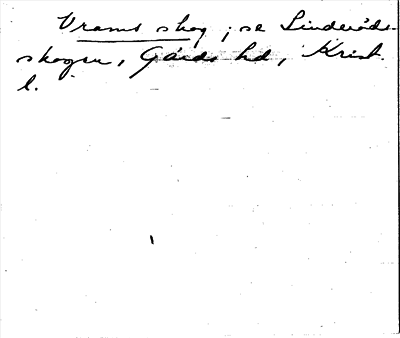 Vrams skog; se Linderöds-
skogen, Gärds hd, Krist.
l.